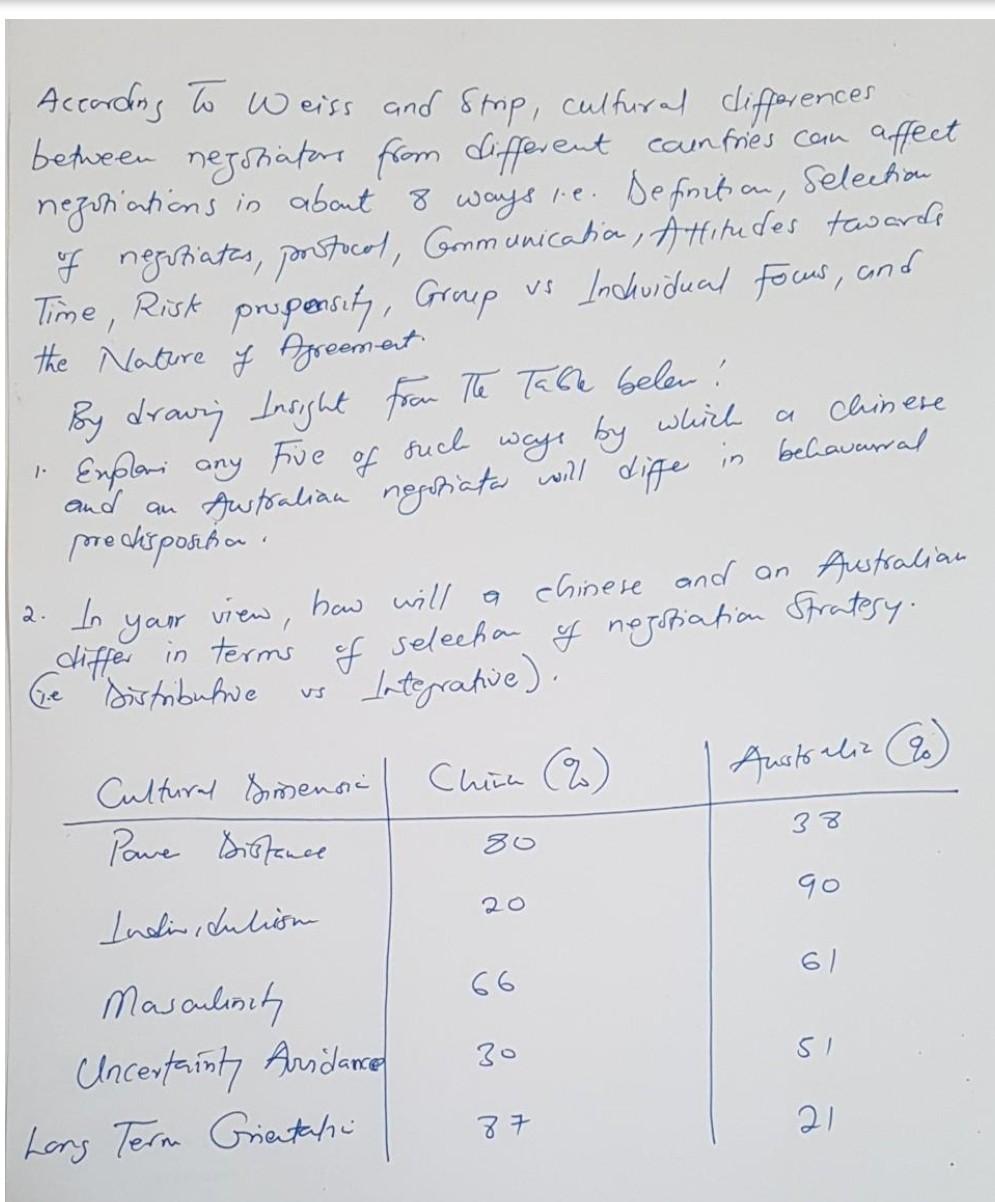 According to Weiss and Strip, cultural differences
between negotiators from different countries can affect
negotiations in about 8 ways i.e. Definition, Selection
of negotiators, protocol, Communication, Attitudes towards
Time, Risk propensity, Group vs Individual Focus, and
the Nature of Agreement.
By drawing Insight from The Table below:
1. Explain any Five of such ways by which a Chinese
and an Australian negotiator will differ in behavioural
predisposition.
2. In your view, how will a Chinese and an Australian
differ in terms of selection of negotiation Strategy.
(i.e Distributive vs Integrative).
Cultural Dimension China (%) Australia (%)
Power Distance 80 38
Individualism 20 90
Masculinity 66 61
Uncertainty Avoidance 30 51
Long Term Orientation 87 21